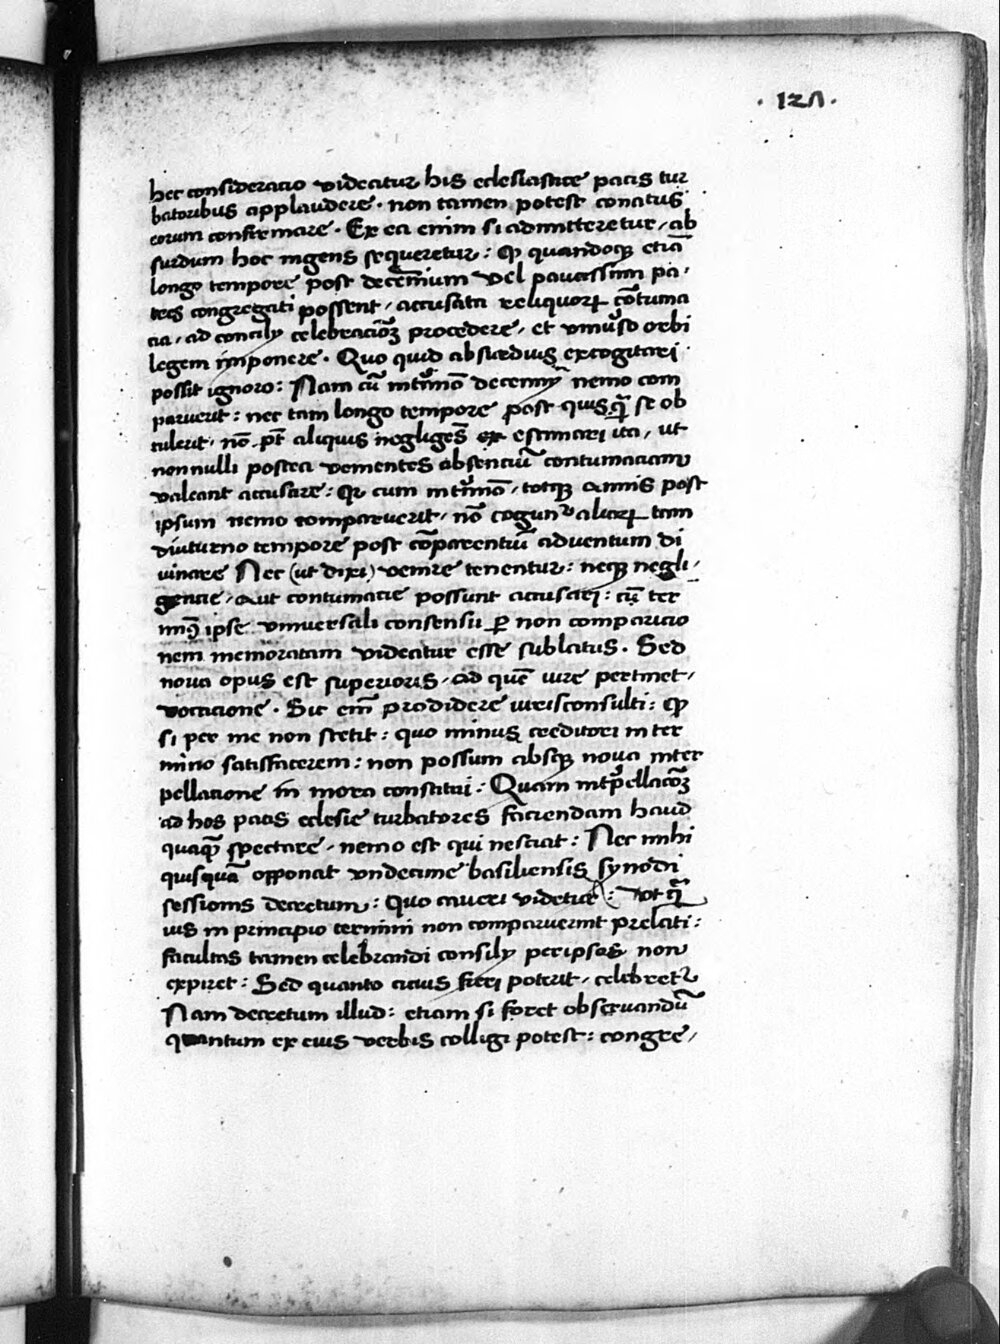 · 121 ·
hec consideratio videatur his ecclesiastice pacis tur
batoribus applaudere · non tamen potest conatus
eorum confirmare · Ex ea enim si admitteretur / ab
surdum hoc ingens sequeretur : ꝙ quandoqꝫ etiā
longo tempore post decennium vel paucissimi pa /
tres congregati possent / accusata reliquoꝝ cōtuma
cia / ad concilij celebracioꝫ procedere / et vniu͛so orbi
legem imponere · Quo quid absurdius excogitari
possit ignoro : Nam cū in t͛mīo decennij nemo com
paruerit : nec tam longo tempore post quisꝙ̄ se ob
tulerit / nō pt̄ aliquis negligēs ex estimari ita / ut
nonnulli postea venientes absenciū contumaciam
valeant accusare : Qr cum in t͛mīo / totqꝫ annis post
ipsum nemo comparuerit / nō cogunt᷑ alioꝝ tam
diuturno tempore post cōparentiū aduentum di
uinare Nec (ut dixi) venire tenentur : neqꝫ negli /
gencie / aut contumacie possunt accusari : cū ter
minꝰ ipse vniuersali consensu ꝑ non comparicio
nem memoratam videatur esse sublatus · Sed
noua opus est superioris / ad quē iure pertinet /
vocacione · Sic em̄ prodidere iurisconsulti : ꝙ
si per me non stetit : quo minus creditori in ter
mino satisfacerem : non possum absqꝫ noua inter
pellatione in mora constitui : Quam int͛pellacōꝫ
ad hos pacis eclesie turbatores faciendam haud
quaꝙ̄ spectare / nemo est qui nesciat : Nec mihi
quisquā opponat vndecime basiliensis synodi
sessionis decretum : Quo caueri videtur : Vt ꝙ̄
uis in principio termini non comparuerint prelati :
facultas tamen celebrandi consilij per ipsas non
expiret : Sed quanto cicius fieri poterit / celebret᷑
Nam decretum illud : etiam si foret obseruandū
quantum ex eius verbis colligi potest : congre /